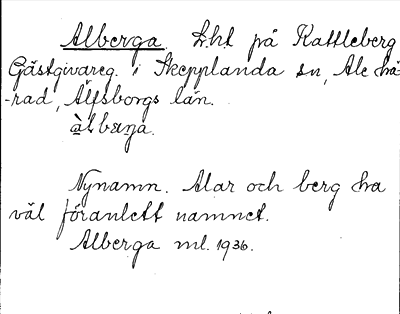 Alberga. Lht på Kattleberg
Gästgivareg. i Skepplanda sn, Ale hä
-rad, Älfsborgs län.
àlbæŋa.
Nynamn. Alar och berg ha
väl föranlett namnet.
Alberga ml. 1936.